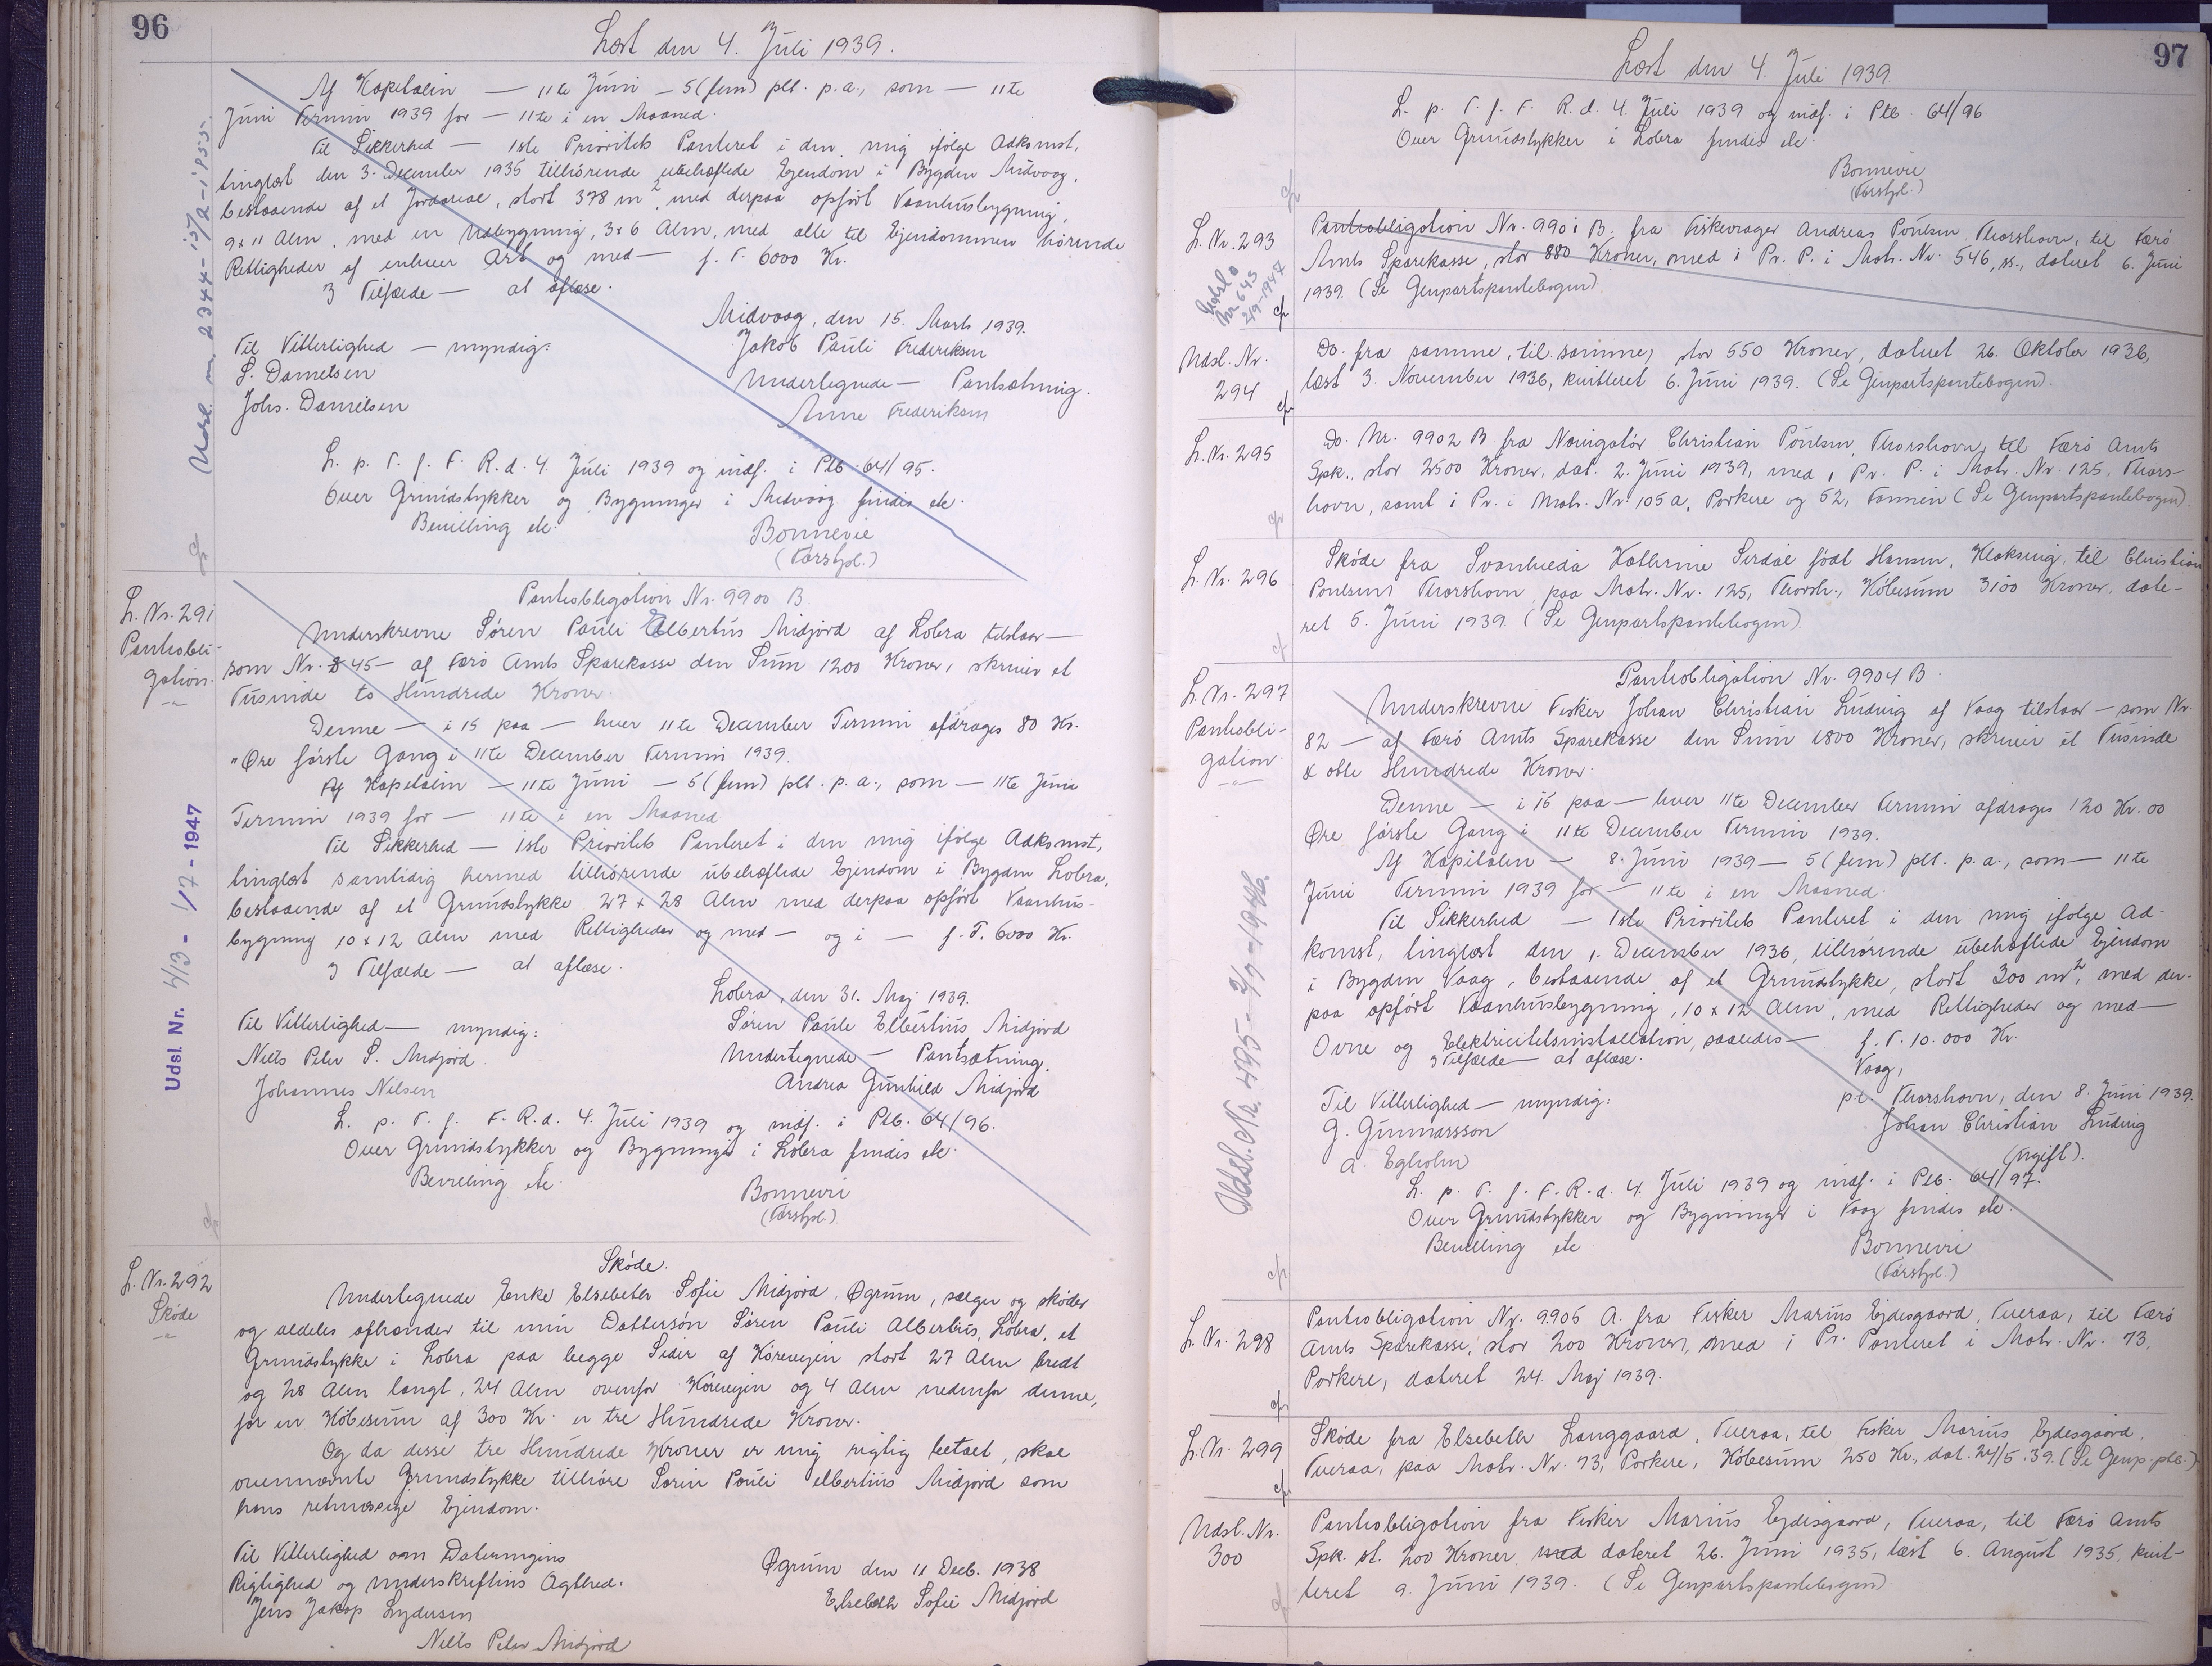 96
Læst den 4. Juli 1939.
Af Kapitalen — 11te Juni — 5 (fem) pCt. p.a., som — 11te
Juni Termin 1939 for — 11te i en Maaned.
Til Sikkerhed — 1ste Prioritets Panteret i den mig ifølge Adkomst,
tinglæst den 3. December 1935 tilhørende ubehæftede Ejendom i Bygden Midvaag,
bestaaende af et Jordareal, stort 378 m², med derpaa opført Vaanhusbygning,
9 x 11 Alm, med en Udbygning, 3 x 6 Alm, med alle til Ejendommen hørende
Rettigheder af enhver Art og med — f. T. 6000 Kr.
I Tilfælde — at aflæse.
Midvaag, den 15. Marts 1939.
Til Vitterlighed — myndig:
Jakob Pauli Frederiksen
S. Danielsen
Undertegnede — Pantsætning.
Johs. Danielsen
Anne Frederiksen
L. p. T. f. F. R. d. 4. Juli 1939 og indf. i Ptb. 64/95.
Over Grundstykker og Bygninger i Midvaag findes etc.
Bevilling etc.
Bonnevie
(Førstful.)
Udsl. nr. 2344 - 15/2 - 1955.
L. Nr. 291
Pantobli-
gation.
Pantobligation Nr. 9900 B.
Underskrevne Søren Pauli Elbertius Midjord af Lobra tilstaar —
som Nr. 845 — af Færø Amts Sparekasse den Sum 1200 Kroner, skriver et
Tusinde to Hundrede Kroner.
Denne — i 15 paa — hver 11te December Termin afdrages 80 Kr.
" Øre første Gang i 11te December Termin 1939.
Af Kapitalen — 11te Juni — 5 (fem) pCt. p.a., som — 11te Juni
Termin 1939 for — 11te i en Maaned
Til Sikkerhed — 1ste Prioritets Panteret i den mig ifølge Adkomst,
tinglæst samtidig hermed tilhørende ubehæftede Ejendom i Bygden Lobra,
bestaaende af et Grundstykke 27 x 28 Alm med derpaa opført Vaanhus-
bygning 10 x 12 Alm med Rettigheder og med — og i — f. T. 6000 Kr.
I Tilfælde — at aflæse.
Lobra, den 31. Maj 1939.
Til Vitterlighed — myndig:
Søren Pauli Elbertius Midjord
Niels Peter S. Midjord.
Undertegnede — Pantsætning.
Johannes Nielsen
Andrea Gunhild Midjord
L. p. T. f. F. R. d. 4. Juli 1939 og indf. i Ptb. 64/96.
Over Grundstykker og Bygninger i Lobra findes etc.
Bevilling etc.
Bonnevie
(Førstful.)
Udsl. Nr. 413 - 1/7 - 1947
L. Nr. 292
Skøde
Skøde.
Undertegnede Enke Elsebeth Sofie Midjord, Øgrum, sælger og skøder
og aldeles afhænder til min Dattersøn Søren Pauli Albertius, Lobra, et
Grundstykke i Lobra paa begge Sider af Kørevejen stort 27 Alm bredt
og 28 Alm langt, 24 Alm ovenfor Kørevejen og 4 Alm nedenfor denne,
for en Købesum af 300 Kr. er tre Hundrede Kroner.
Og da disse tre Hundrede Kroner er mig rigtig betalt, skal
ovennævnte Grundstykke tilhøre Søren Pauli Elbertius Midjord som
hans retmæssige Ejendom.
Til Vitterlighed om Dateringens
Rigtighed og Underskriftens Ægthed.
Øgrum den 11 Decb. 1938
Jens Jakop Lydersen
Elsebeth Sofie Midjord
Niels Peter Midjord
97
Læst den 4. Juli 1939.
L. p. T. f. F. R. d. 4. Juli 1939 og indf. i Ptb. 64/96
Over Grundstykker i Lobra findes etc.
Bonnevie
(Førstful.)
L. Nr. 293
Udsl.
Nr. 643
2/9-1947
Pantobligation Nr. 9901 B. fra Fiskevrager Andreas Poulsen, Thorshavn, til Færø
Amts Sparekasse, stor 880 Kroner, med 1 Pr. P. i Matr. Nr. 546, dateret 6. Juni
1939. (Se Genpartspantebogen).
Udsl. Nr.
294
Do. fra samme, til samme, stor 550 Kroner, dateret 26. Oktober 1936,
læst 3. November 1936, kvitteret 6. Juni 1939. (Se Genpartspantebogen).
L. Nr. 295
Do. Nr. 9902 B fra Navigatør Christian Poulsen, Thorshavn, til Færø Amts
Spk., stor 2500 Kroner, dat. 2. Juni 1939, med 1 Pr. P. i Matr. Nr. 125, Thors-
havn, samt 1 Pr. i Matr. Nr. 105a, Porkere og 52, Fannin (Se Genpartspantebogen)
L. Nr. 296
Skøde fra Svanhvida Kathrine Sirdal født Hansen, Klaksvig, til Christian
Poulsen, Thorshavn, paa Matr. Nr. 125, Thorsh., Købesum 3100 Kroner, date-
ret 5. Juni 1939. (Se Genpartspantebogen).
L. Nr. 297
Pantobli-
gation
Pantobligation Nr. 9904 B.
Underskrevne Fisker Johan Christian Ludvig af Vaag tilstaar — som Nr.
82 — af Færø Amts Sparekasse den Sum 1800 Kroner, skriver et Tusinde
& otte Hundrede Kroner.
Denne — i 15 paa — hver 11te December Termin afdrages 120 Kr. 00
Øre første Gang i 11te December Termin 1939.
Af Kapitalen — 8. Juni 1939 — 5 (fem) pCt. p.a., som — 11te
Juni Termin 1939 for — 11te i en Maaned.
Til Sikkerhed — 1ste Prioritets Panteret i den mig ifølge Ad-
komst, tinglæst den 1. December 1936, tilhørende ubehæftede Ejendom
i Bygden Vaag, bestaaende af et Grundstykke, stort 300 m², med der-
paa opført Vaanhusbygning, 10 x 12 Alm, med Rettigheder og med —
Ovne og Elektricitetsinstallation, saaledes — f. T. 10.000 Kr.
I Tilfælde — at aflæse.
Vaag,
Til Vitterlighed — myndig:
pt. Thorshavn, den 8. Juni 1939.
G. Gunnarsson
Johan Christian Ludvig
A. Egholm
(ugift).
L. p. T. f. F. R. d. 4. Juli 1939 og indf. i Ptb. 64/97.
Over Grundstykker og Bygninger i Vaag findes etc.
Bevilling etc
Bonnevie
(Førstful.)
Udsl. Nr. 495 - 2/9 - 1946.
L. Nr. 298
Pantobligation Nr. 9905 A. fra Fisker Marius Ejdesgaard, Tveraa, til Færø
Amts Sparekasse, stor 200 Kroner, med 1 Pr. Panteret i Matr. Nr. 73,
Porkere, dateret 24. Maj 1939.
L. Nr. 299
Skøde fra Elsebeth Langgaard, Tveraa, til Fisker Marius Ejdesgaard,
Tveraa, paa Matr. Nr. 73, Porkere, Købesum 250 Kr., dat. 24/5.39. (Se Genp.ptb.)
Udsl. Nr.
300
Pantobligation fra Fisker Marius Ejdisgaard, Tveraa, til Færø Amts
Spk. st. 200 Kroner, med dateret 26. Juni 1935, læst 6. August 1935, kvit-
teret 9. Juni 1939. (Se Genpartspantebogen)